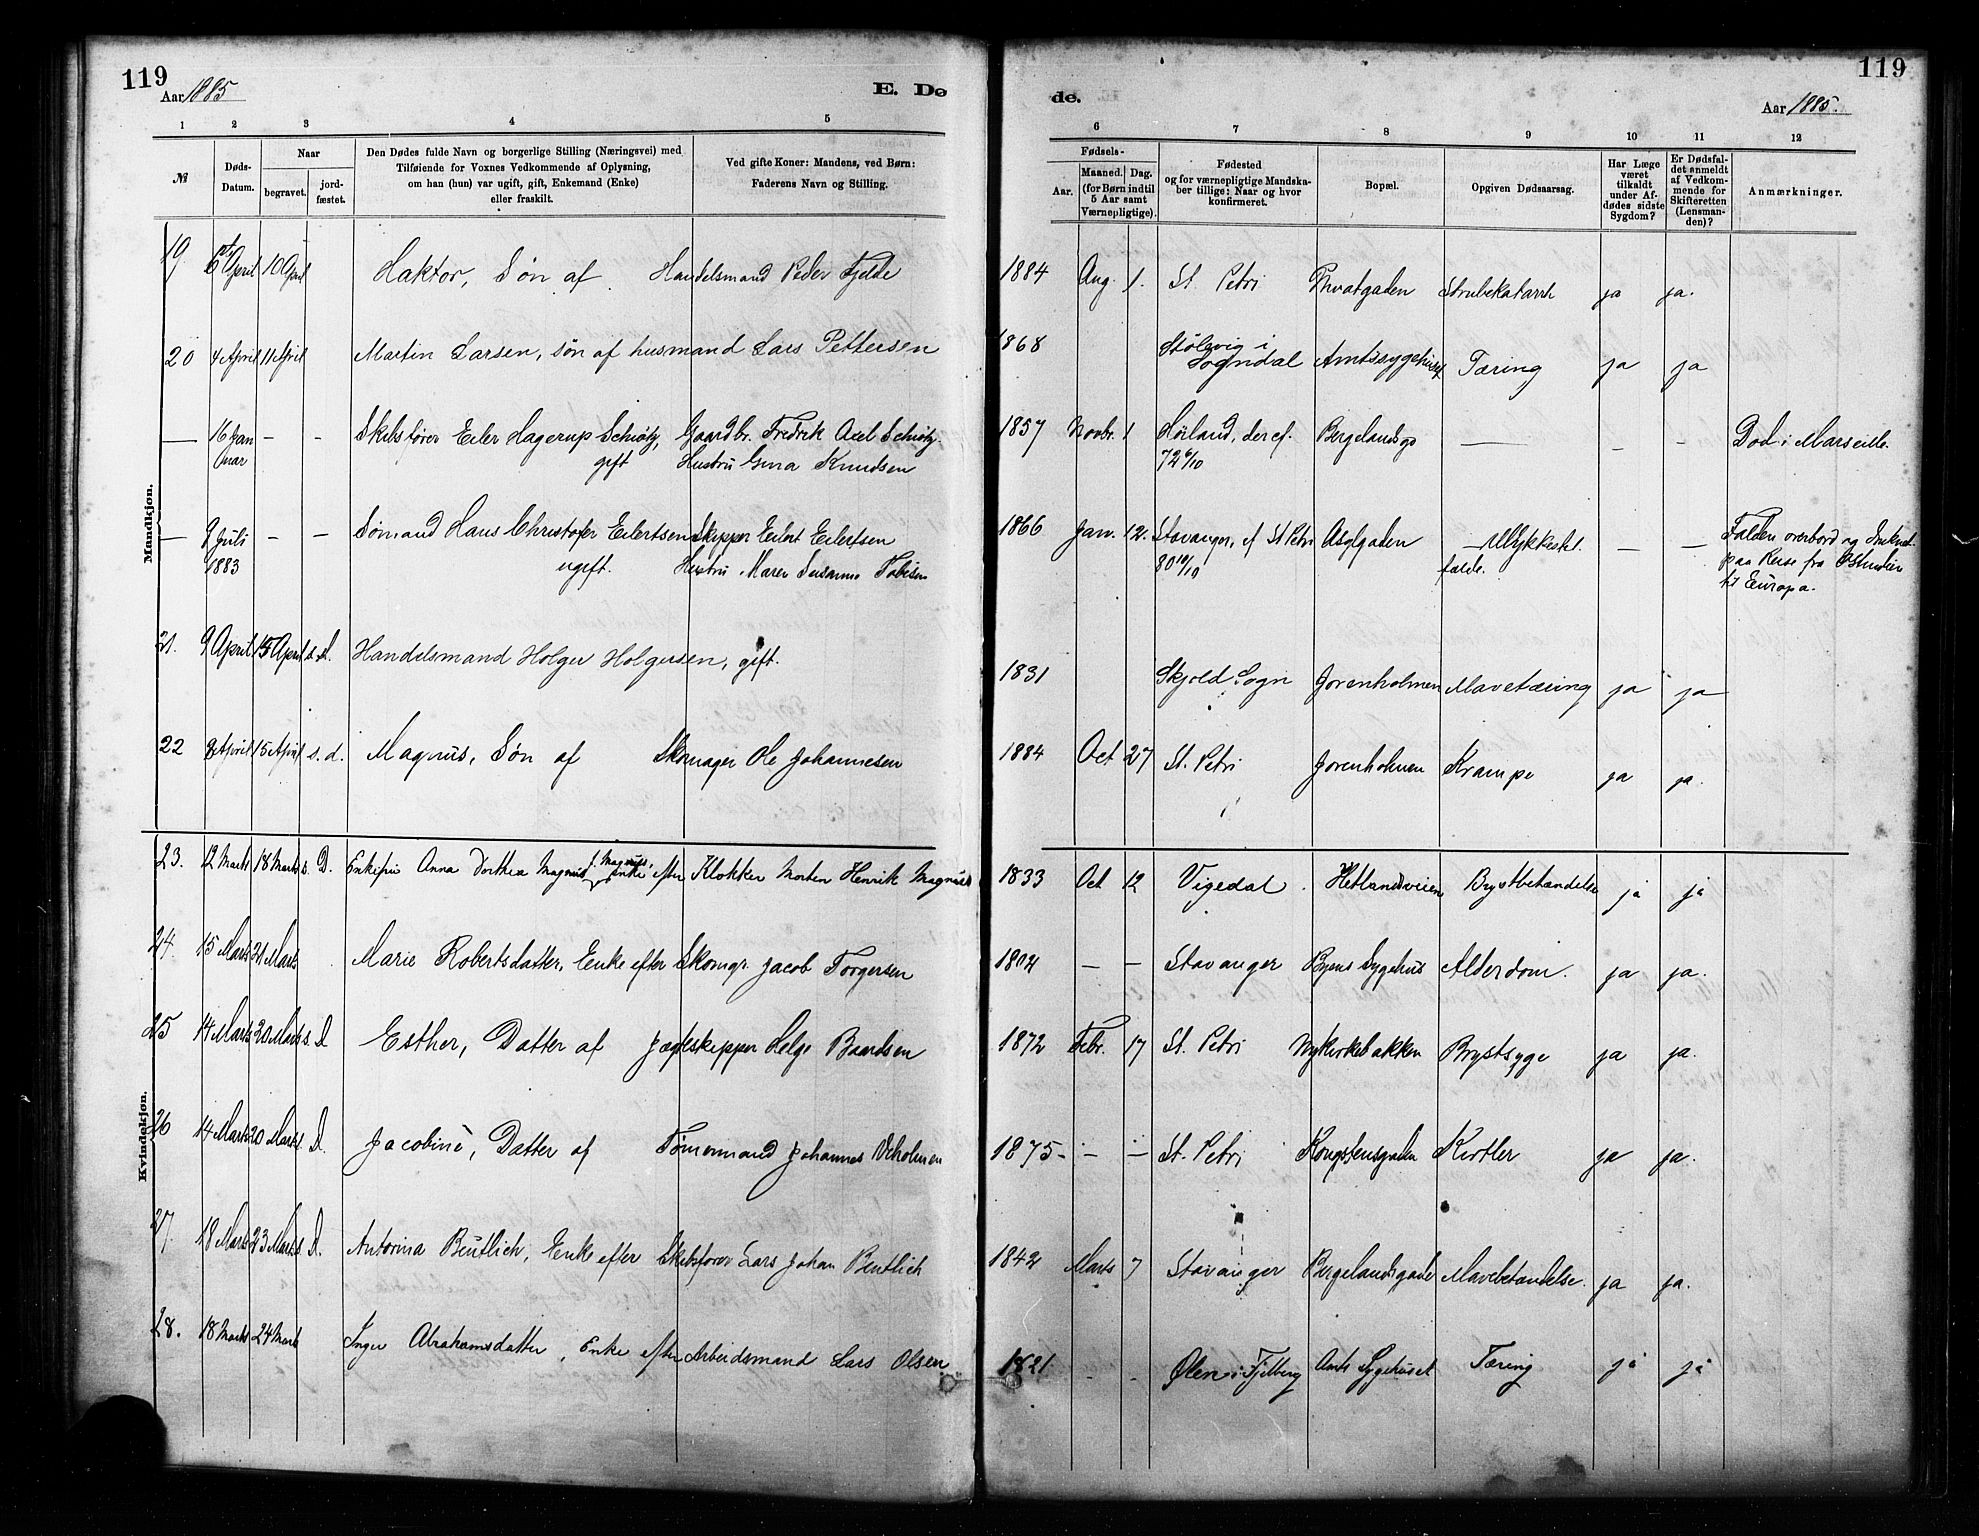 119
Aar 1885
E. Dø
de.
119
Aar 1885.
1 2 3 4 5 6 7 8 9 10 11 12
№
Døds-
Datum.
Naar
begravet.
jord-
fæstet.
Den Dødes fulde Navn og borgerlige Stilling (Næringsvei) med
Tilføiende for Voxnes Vedkommende af Oplysning,
om han (hun) var ugift, gift, Enkemand (Enke)
eller fraskilt.
Ved gifte Koner: Mandens, ved Børn:
Faderens Navn og Stilling.
Fødsels-
Aar.
Maaned. Dag.
(for Børn indtil
5 Aar samt
Værnepligtige).
Fødested
og for værnepligtige Mandska-
ber tillige: Naar og hvor
konfirmeret.
Bopæl.
Opgiven Dødsaarsag.
Har Læge
været
tilkaldt
under Af-
dødes sidste
Sygdom?
Er Dødsfal-
det anmeldt
af Vedkom-
mende for
Skifteretten
(Lensman-
den)?
Anmærkninger.
Mandkjøn.
19 6 April 10 April Haktor, Søn af Handelsmand Peder Fjelde 1884 Aug. 1. St. Petri Privatgaden Strubekatarrh ja ja.
20 4 April 11 April Martin Larsen, søn af husmand Lars Pettersen 1868 Stølsvig i
Sogndal Amtssygehuset Tæring ja ja
— 16 Jan
uar — — Skibsfører Eiler Hagerup Schiøtz, gift Gaardbr. Fredrik Axel Schiøtz.
Hustru Gina Knudsen 1857 Novbr. 1 Høiland, der cf.
72 6/10 Bergelandsg — — — Død i Marseille.
— 9 Juli
1883 — — Sømand Hans Christofer Eilertsen
ugift. Skipper Eilert Eilertsen
Hustru Maren Susanne Tobisen 1866 Jan. 12. Stavanger, cf St Petri
80 10/10 Asylgaden — Ulykkestil-
fælde. — — Falden overbord og druknet
paa Reise fra Ostindien
til Europa.
21. 9 April 15 April s. d. Handelsmand Holger Holgersen, gift. 1831 Skjold Sogn Jorenholmen Mavetæring ja ja
22 8 April 15 April s. d. Magnus, Søn af Skomager Ole Johannesen 1884 Oct 27 St. Petri Jorenholmen Krampe ja ja.
Kvindekjøn.
23. 12 Marts 18 Marts s. D. Enkefru Anna Dorthea Magnus f. Magnus, Enke efter Klokker Morten Henrik Magnus 1833 Oct 12 Vigedal Hetlandsveien Brystbetændelse ja ja
24. 15 Marts 21 Marts Marie Robertsdatter, Enke efter Skomgr. Jacob Torgersen 1804 — — Stavanger Byens Sygehus Alderdom. ja ja.
25 14 Marts 20 Marts s. D Esther, Datter af Jægteskipper Helge Baardsen 1872 Febr. 17 St. Petri Nykirkebakken Brystsyge ja ja.
26 14 Marts 20 Marts s. D. Jacobine, Datter af Tømmermand Johannes Veholmen 1875 — — — St. Petri Kongstensgaden Kirtler ja ja.
27. 18 Marts 23 Marts s. D. Antonina Beutlich, Enke efter Skibsfører Lars Johan Beutlich 1842 Marts 7 Stavanger Bergelandsgade Mavebetændelse. ja ja.
28. 18 Marts 24 Marts Inger Abrahamsdatter, Enke efter Arbeidsmand Lars Olsen 1821 - - Ølen i Fjelberg Amts Sygehuset Tæring ja ja